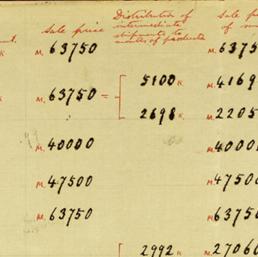 Sale price Distribution of intermediate shipments to makers of products Sale p
K M. 63750 M. 6375
K M. 63750 = 5100 K M. 4169
2698 K M. 2205
M. 40000 M. 4000
M. 47500 M. 4750
M. 63750 M. 6375
2992 K M. 2706